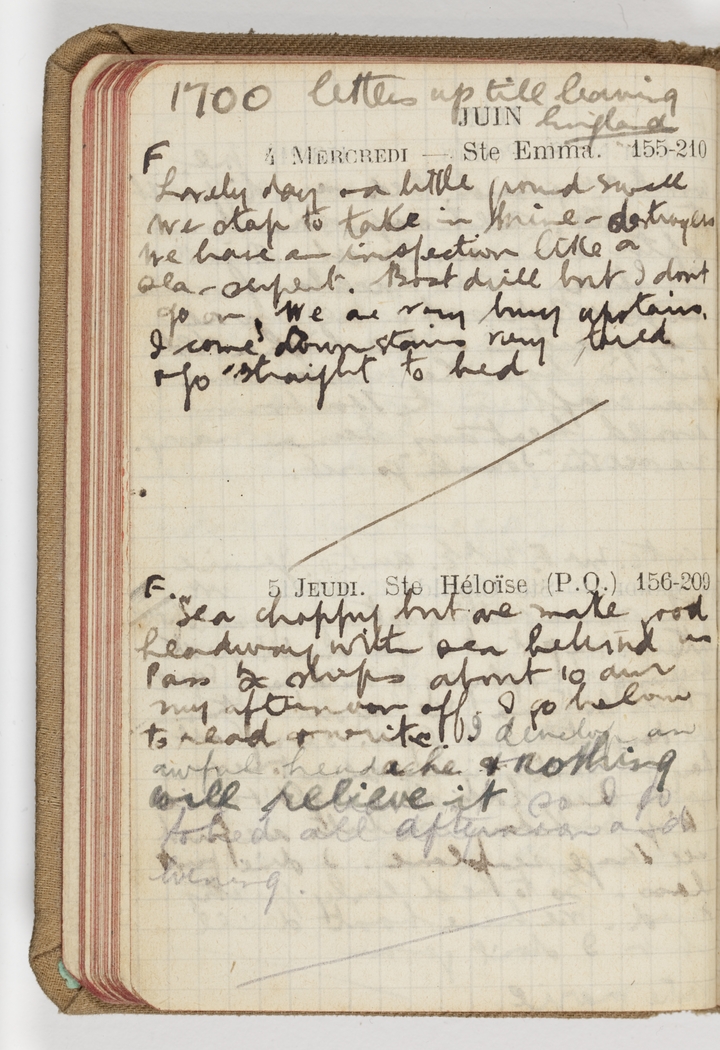 1700 letters up till leaving
JUIN England
F 4 MERCREDI — Ste Emma. 155-210
Lovely day a little ground swell
We stop to take in - destroyers
We have an inspection like a
sea-serpent. Boat drill but I don't
go on. We are very busy upstairs.
I come downstairs very tired
& go straight to bed
F. 5 JEUDI. Ste Héloïse (P.Q.) 156-209
Sea choppy but we make good
headway with sea behind us
Pass 2 ships about 10 am
my afternoon off. I go below
to read & write. I develop an
awful headache & nothing
will relieve it so I go
to bed all afternoon and
evening.